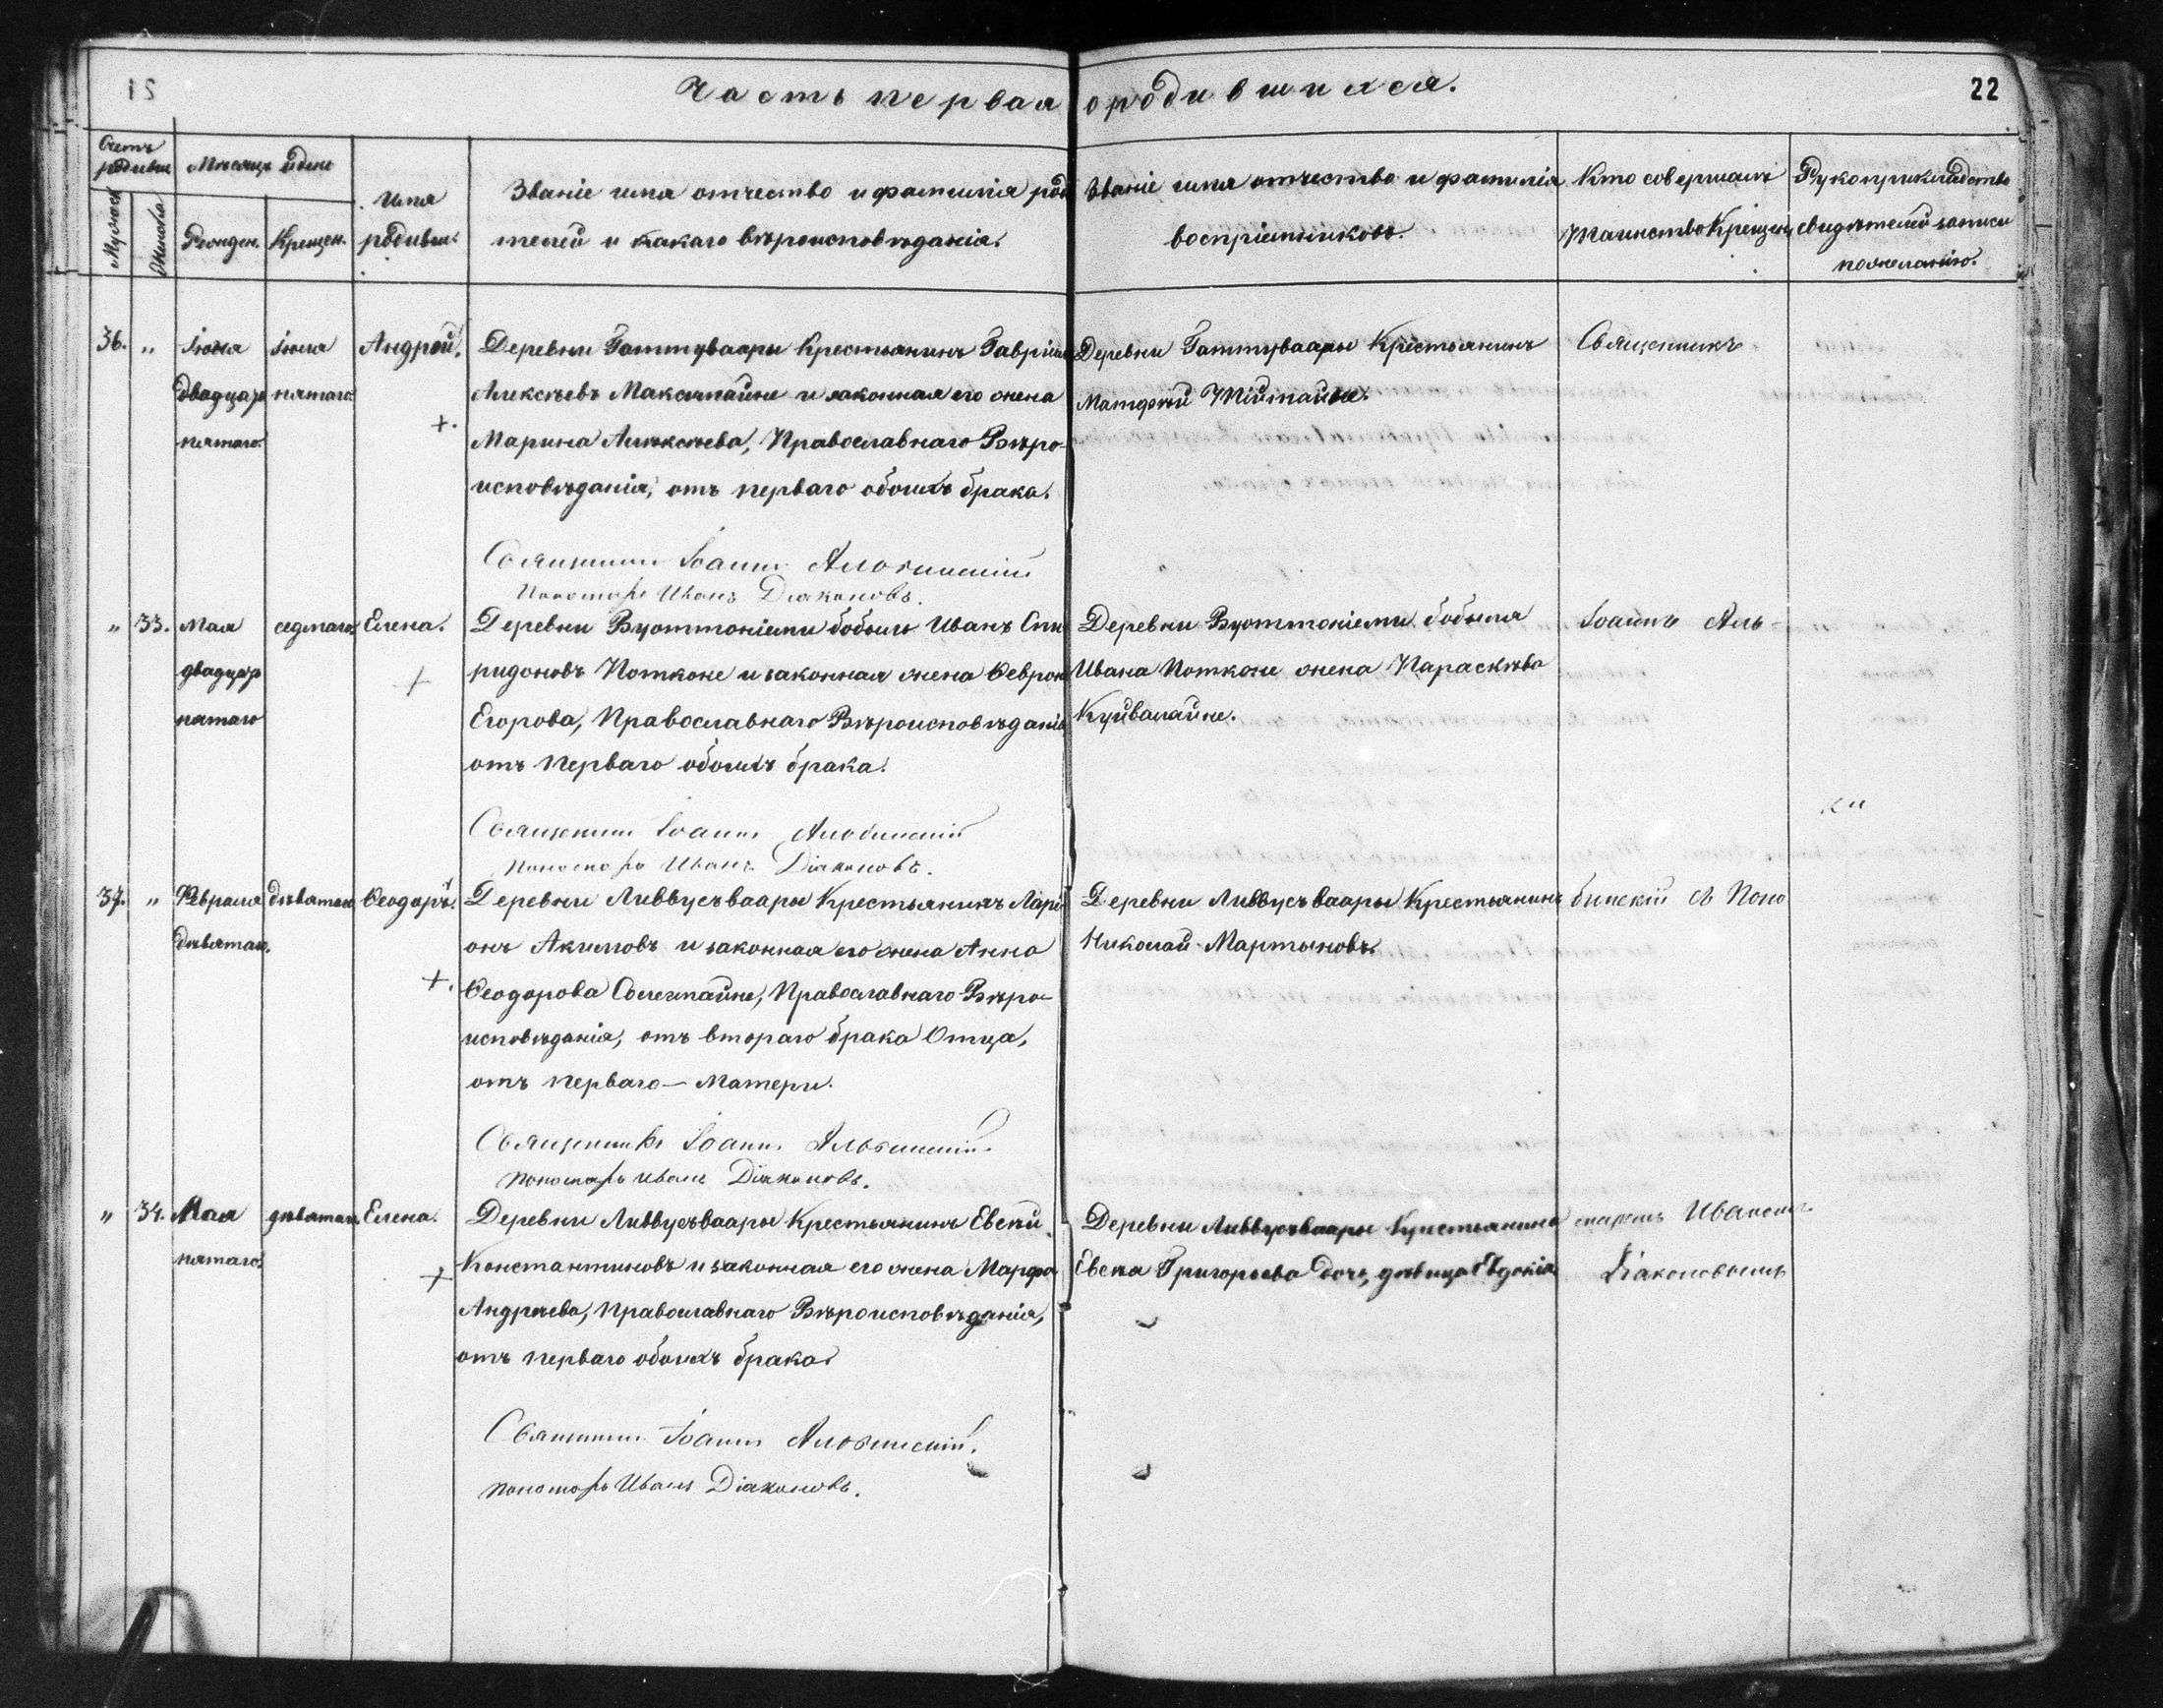 21
Часть первая о родившихся.
22
Счетъ родивш.
Мѣсяцъ и день
Мужеска
Женска
Рожден.
Крещен.
Имя
родивш.
Званіе имя отчество и фамилія роди
телей и какаго вѣроисповѣданія.
Званіе имя отчество и фамилія
воспріемниковъ.
Кто совершалъ
Таинство Крещен.
Рукоприкладство
свидѣтелей записи
по желанію.
36. " Іюня Іюля Андрей. Деревни Гаттуваары Крестьянинъ Гавріилъ
двадцать пятаго Алексѣевъ Максимайне и законная его жена
пятаго. Марина Алексѣева, Православнаго Вѣро-
исповѣданія, отъ перваго обоихъ брака.
Деревни Гаттуваары Крестьянинъ
Матфей Тійтайне.
Священникъ
Священникъ Іоаннъ Альбинскій
Пономарь Иванъ Діаконовъ.
" 33. Мая седмаго. Елена. Деревни Вуоттоніеми бобыль Иванъ Спи
двадцать ридоновъ Потконе и законная жена Феврон
пятаго Егорова, Православнаго Вѣроисповѣданія
отъ перваго обоихъ брака.
Деревни Вуоттоніеми бобыля
Ивана Потконе жена Параскева
Куйвалайне.
Іоаннъ Аль-
Священникъ Іоаннъ Альбинскій
пономарь Иванъ Діаконовъ.
37. " Февраля девятаго Ѳеодоръ. Деревни Ливвусъваары Крестьянинъ Ларі
девятаго. онъ Акимовъ и законная его жена Анна
Ѳеодорова Соллемайне, Православнаго Вѣро-
исповѣданія, отъ втораго брака Отца,
отъ перваго — Матери.
Деревни Ливвусъваары Крестьянинъ
Николай Мартыновъ.
бинскій съ Поно
Священникъ Іоаннъ Альбинскій.
пономарь Иванъ Діаконовъ.
" 34. Мая девятаго. Елена. Деревни Ливвусъваары Крестьянинъ Евсей
пятаго. Константиновъ и законная его жена Марфа
Андреева, Православнаго Вѣроисповѣданія,
отъ перваго обоихъ брака.
Деревни Ливвусъваары Крестьянина
Евсея Григорьева дочь, девица Евдокія
маремъ Иваномъ
Діаконовымъ
Священникъ Іоаннъ Альбинскій.
пономарь Иванъ Діаконовъ.